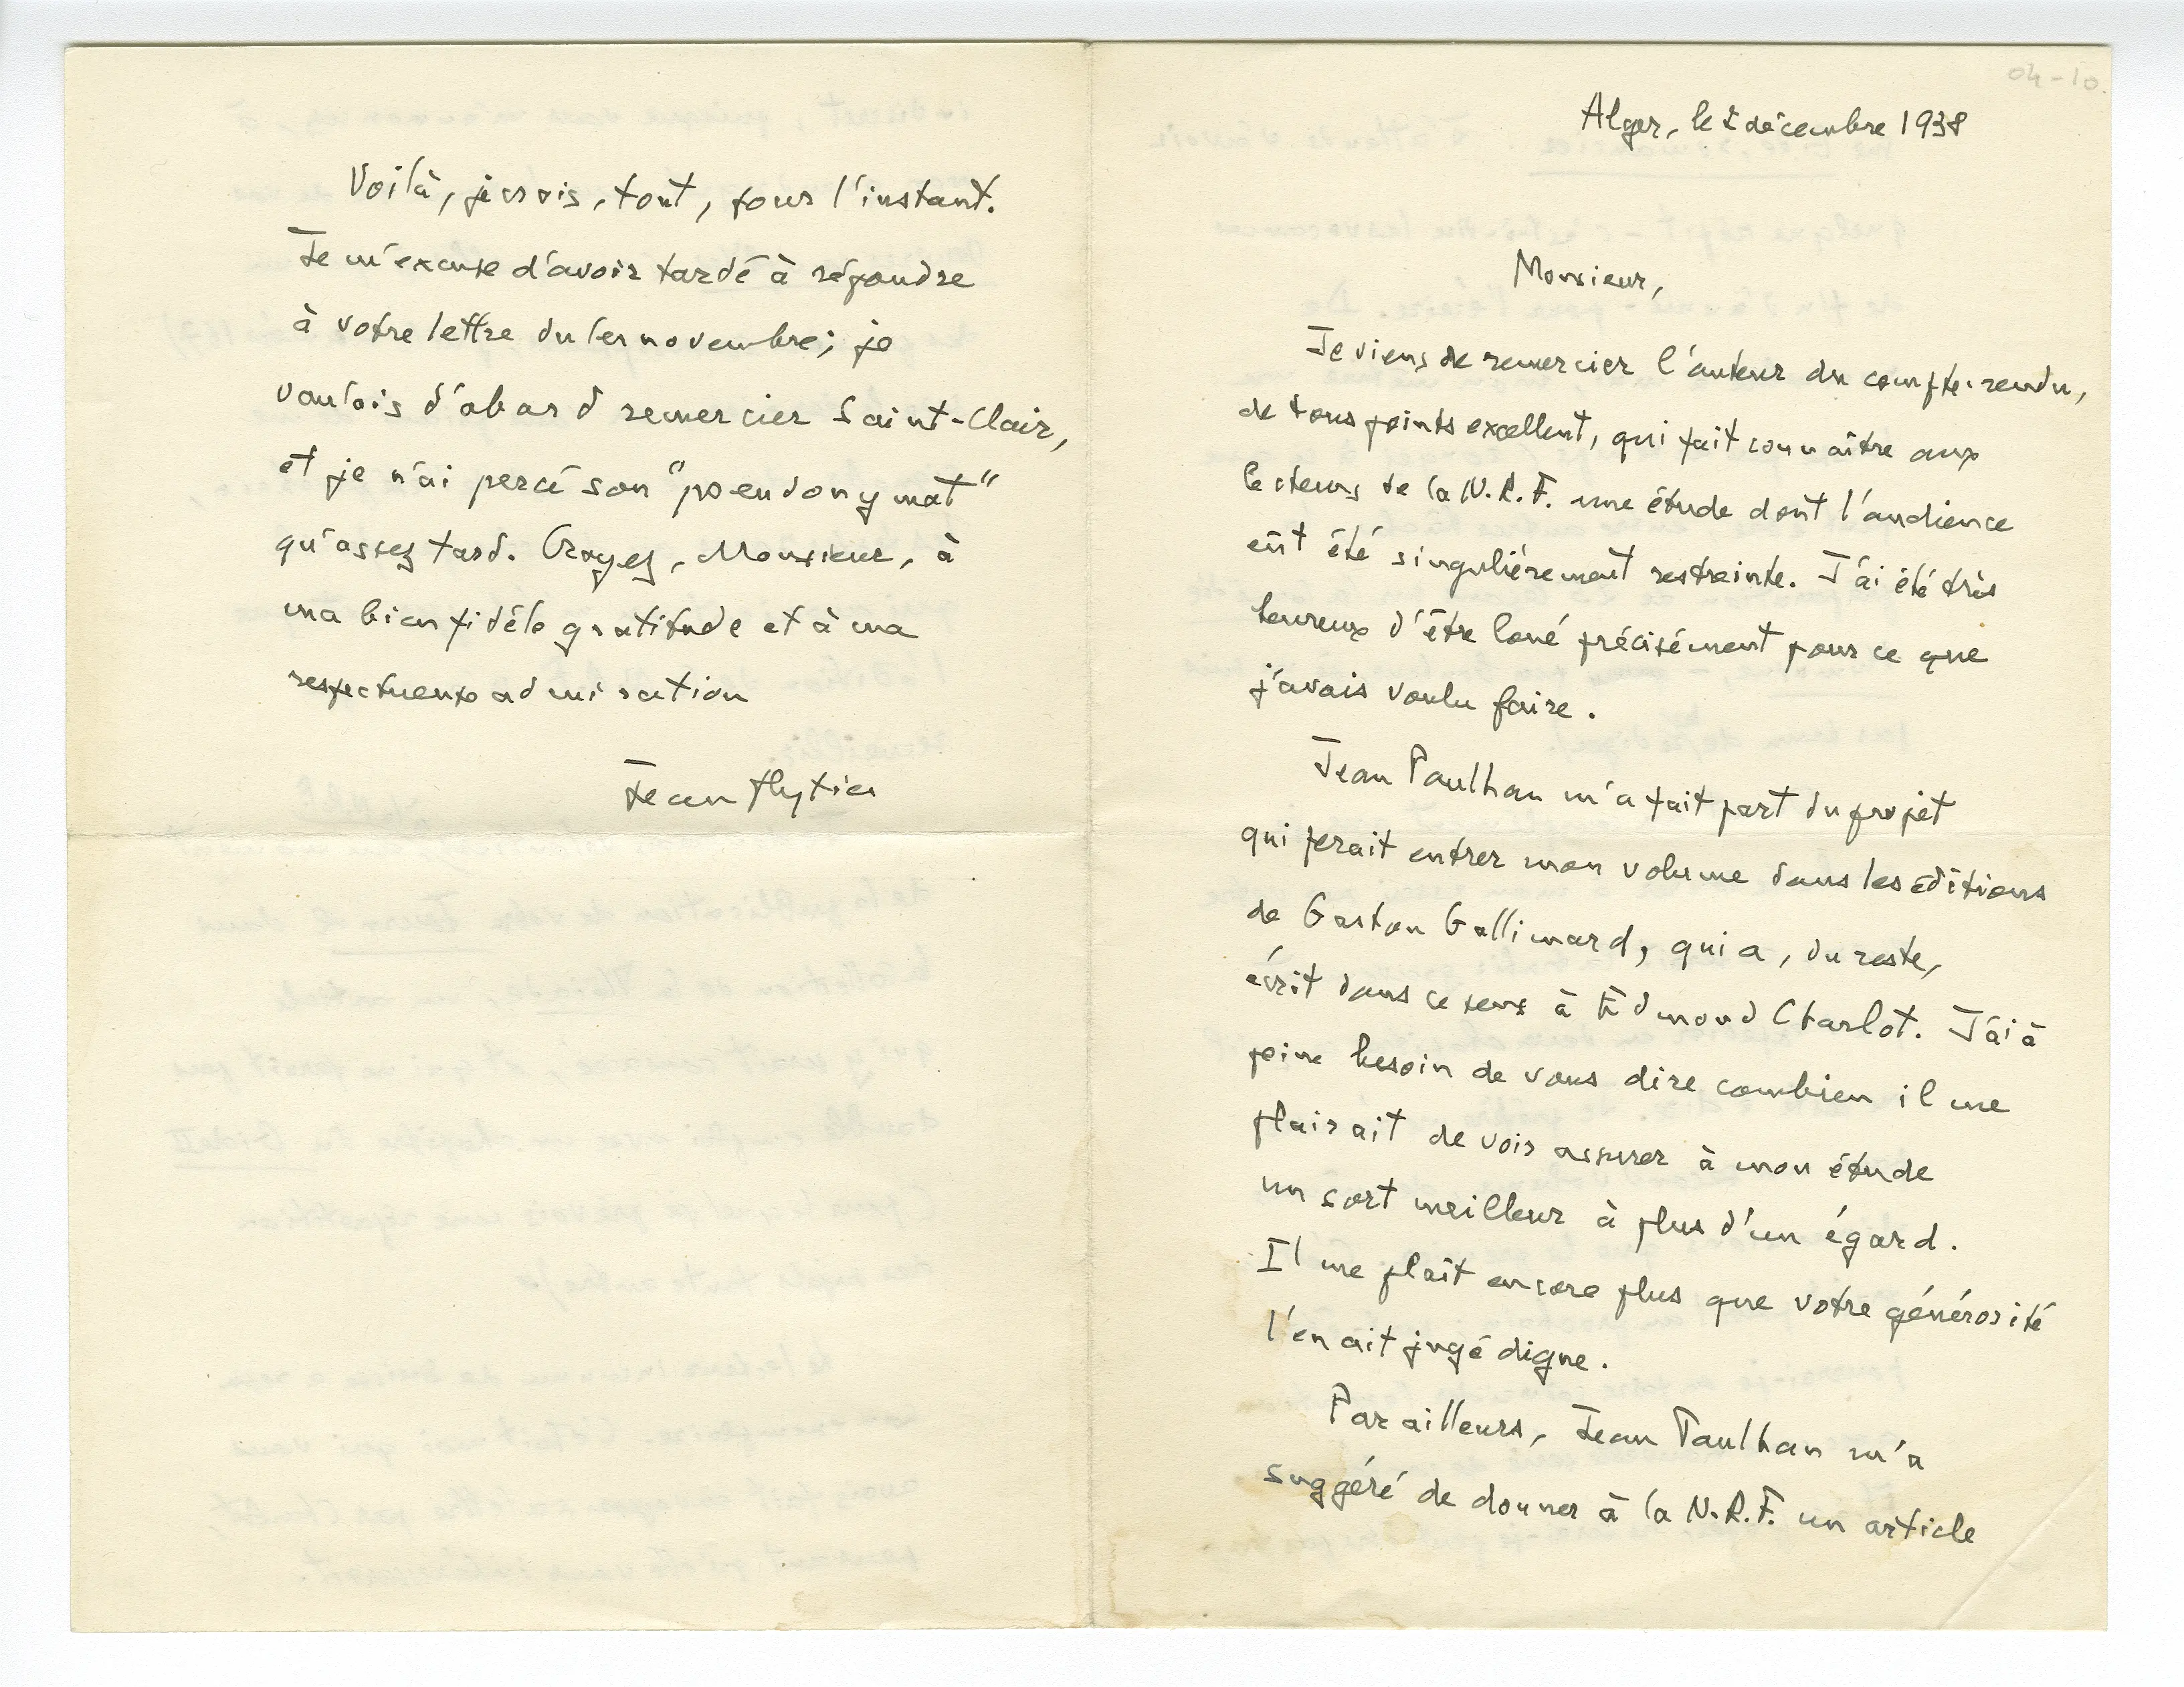 04-10.
Alger, le 2 décembre 1938
Monsieur,
Je viens de remercier l'auteur du compte-rendu,
de tous points excellent, qui fait connaître aux
lecteurs de la N.R.F. une étude dont l'audience
eût été singulièrement restreinte. J'ai été très
heureux d'être loué précisément pour ce que
j'avais voulu faire.
Jean Paulhan m'a fait part du projet
qui ferait entrer mon volume dans les éditions
de Gaston Gallimard, qui a, du reste,
écrit dans ce sens à Edmond Charlot. J'ai à
peine besoin de vous dire combien il me
plairait de voir assurer à mon étude
un sort meilleur à plus d'un égard.
Il me plaît encore plus que votre générosité
l'en ait jugé digne.
Par ailleurs, Jean Paulhan m'a
suggéré de donner à la N.R.F. un article
Voilà, je crois, tout, pour l'instant.
Je m'excuse d'avoir tardé à répondre
à votre lettre du 1er novembre; je
voulais d'abord remercier Saint-Clair,
et je n'ai percé son "pseudonymat"
qu'assez tard. Croyez, Monsieur, à
ma bien fidèle gratitude et à ma
respectueuse admiration
Jean Hytier